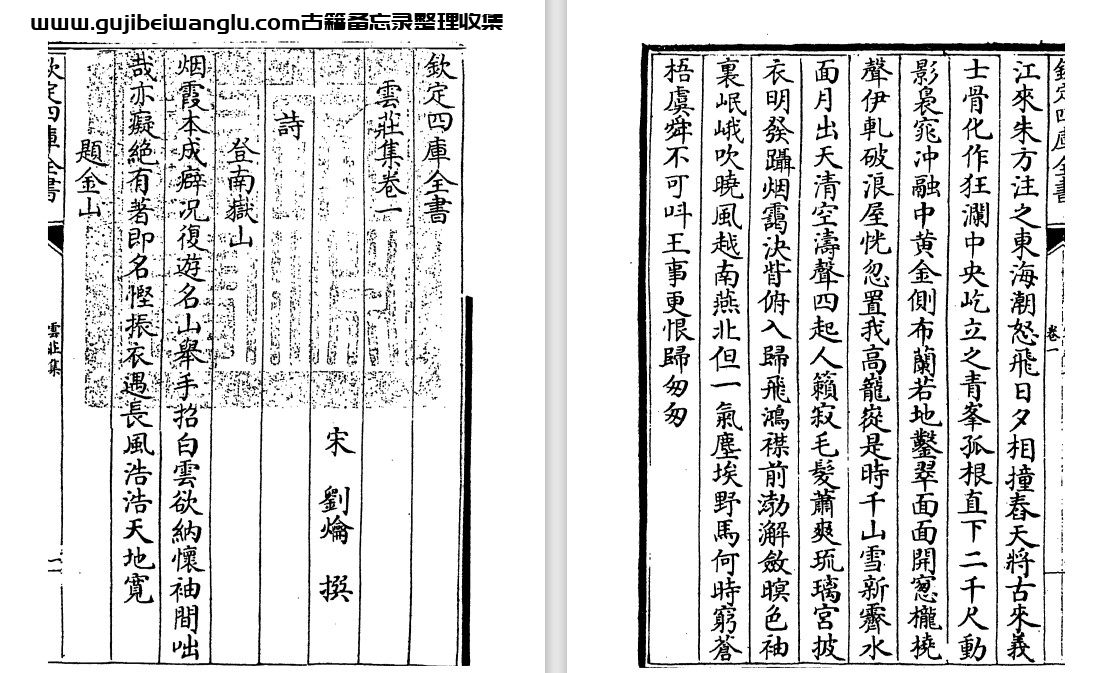 www.gujibeiwanglu.com古籍备忘录整理收集
欽定四庫全書
雲莊集卷一
宋 劉爚 撰
詩
登南嶽山
烟霞本成癖况復遊名山舉手招白雲欲納懷袖間咄
哉亦癡絕有著即名慳振衣遇長風浩浩天地寬
題金山
欽定四庫全書 雲莊集
欽定四庫全書 卷一
江來朱方注之東海潮怒飛日夕相撞舂天將古來義
士骨化作狂瀾中央屹立之青峯孤根直下二千尺動
影裊窕冲融中黄金側布蘭若地鑿翠面面開窻櫳撓
聲伊軋破浪屋恍忽置我高巃嵸是時千山雪新霽水
面月出天清空濤聲四起人籟寂毛髮蕭爽琉璃宮披
衣明發躡烟靄決眥俯入歸飛鴻襟前渤澥斂暝色袖
裏岷峨吹曉風越南燕北但一氣塵埃野馬何時窮蒼
梧虞舜不可呌王事更恨歸匆匆